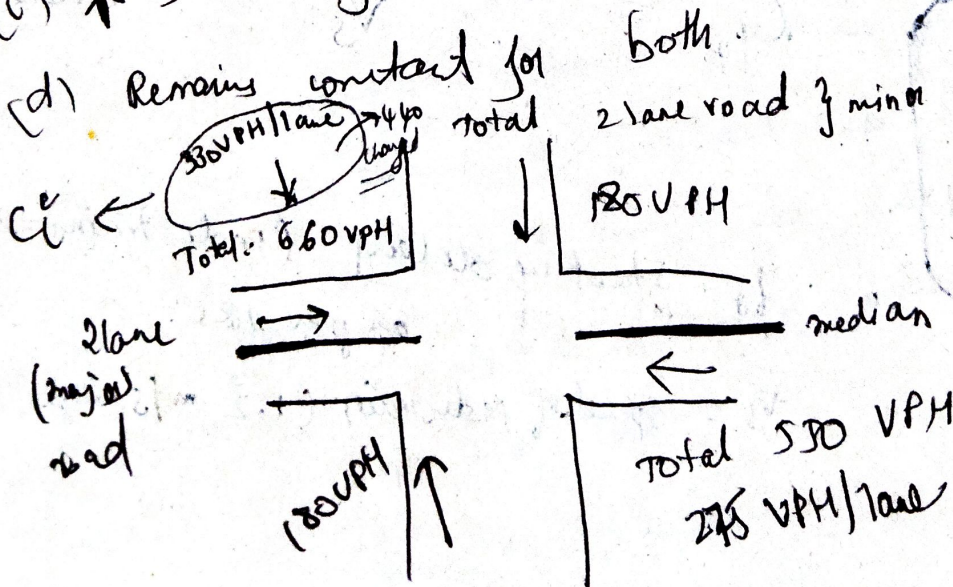 (d) Remains constant for both.
330 VPH/lane → 440
changed
Total 2 lane road } minor
Ci ←
Total: 660 VPH
180 VPH
2 lane
(major)
road
median
180 VPH
Total 550 VPH
275 VPH/lane